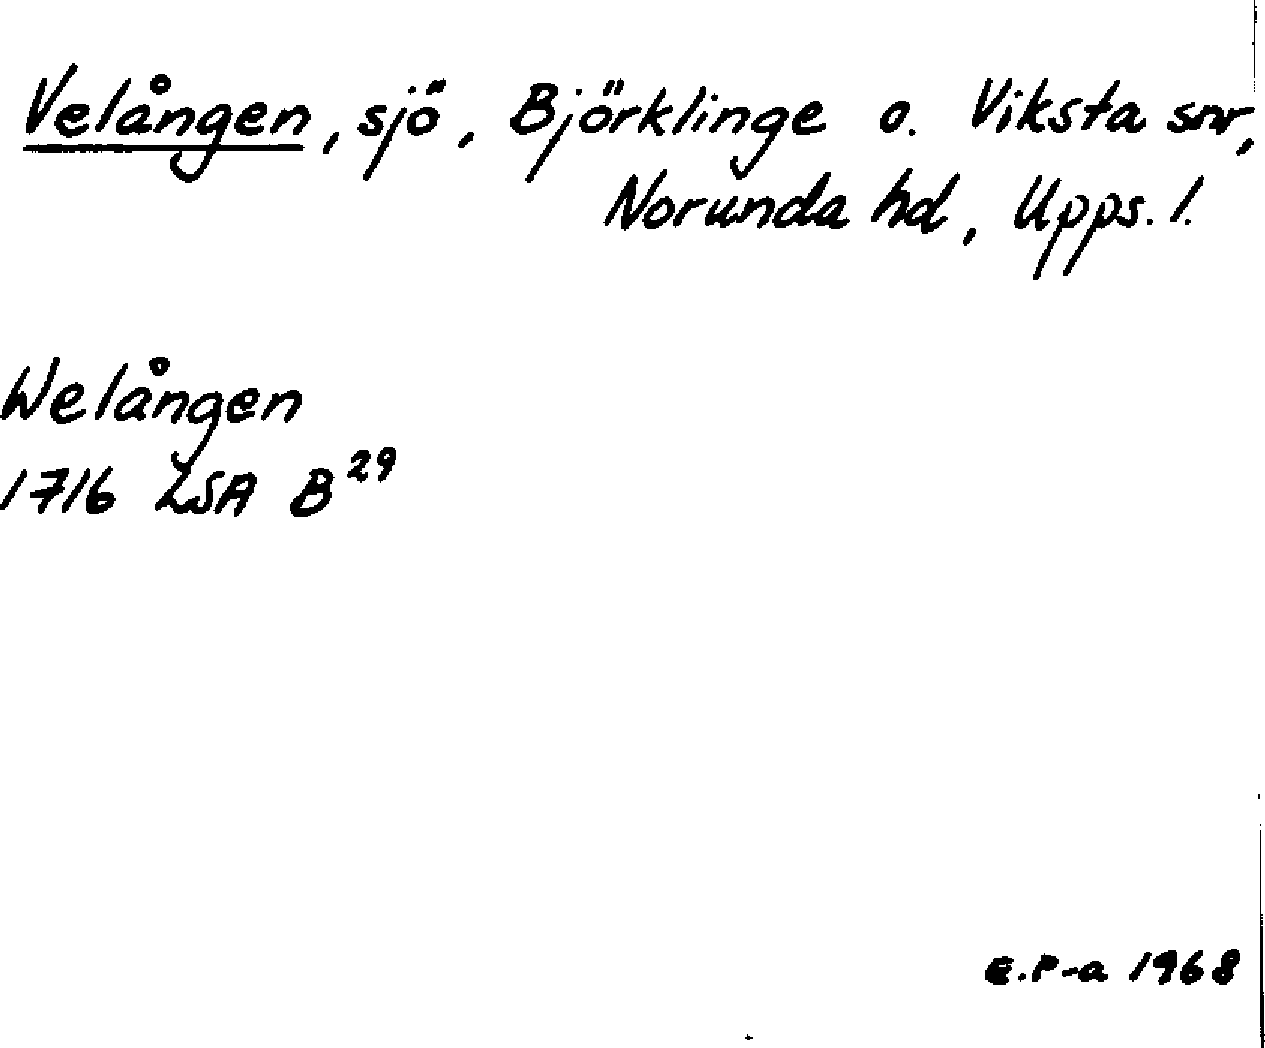 Velången, sjö, Björklinge o. Viksta snr,
Norunda hd, Upps. l.
Welången
1716 LSA B²⁹
E.P-a 1968